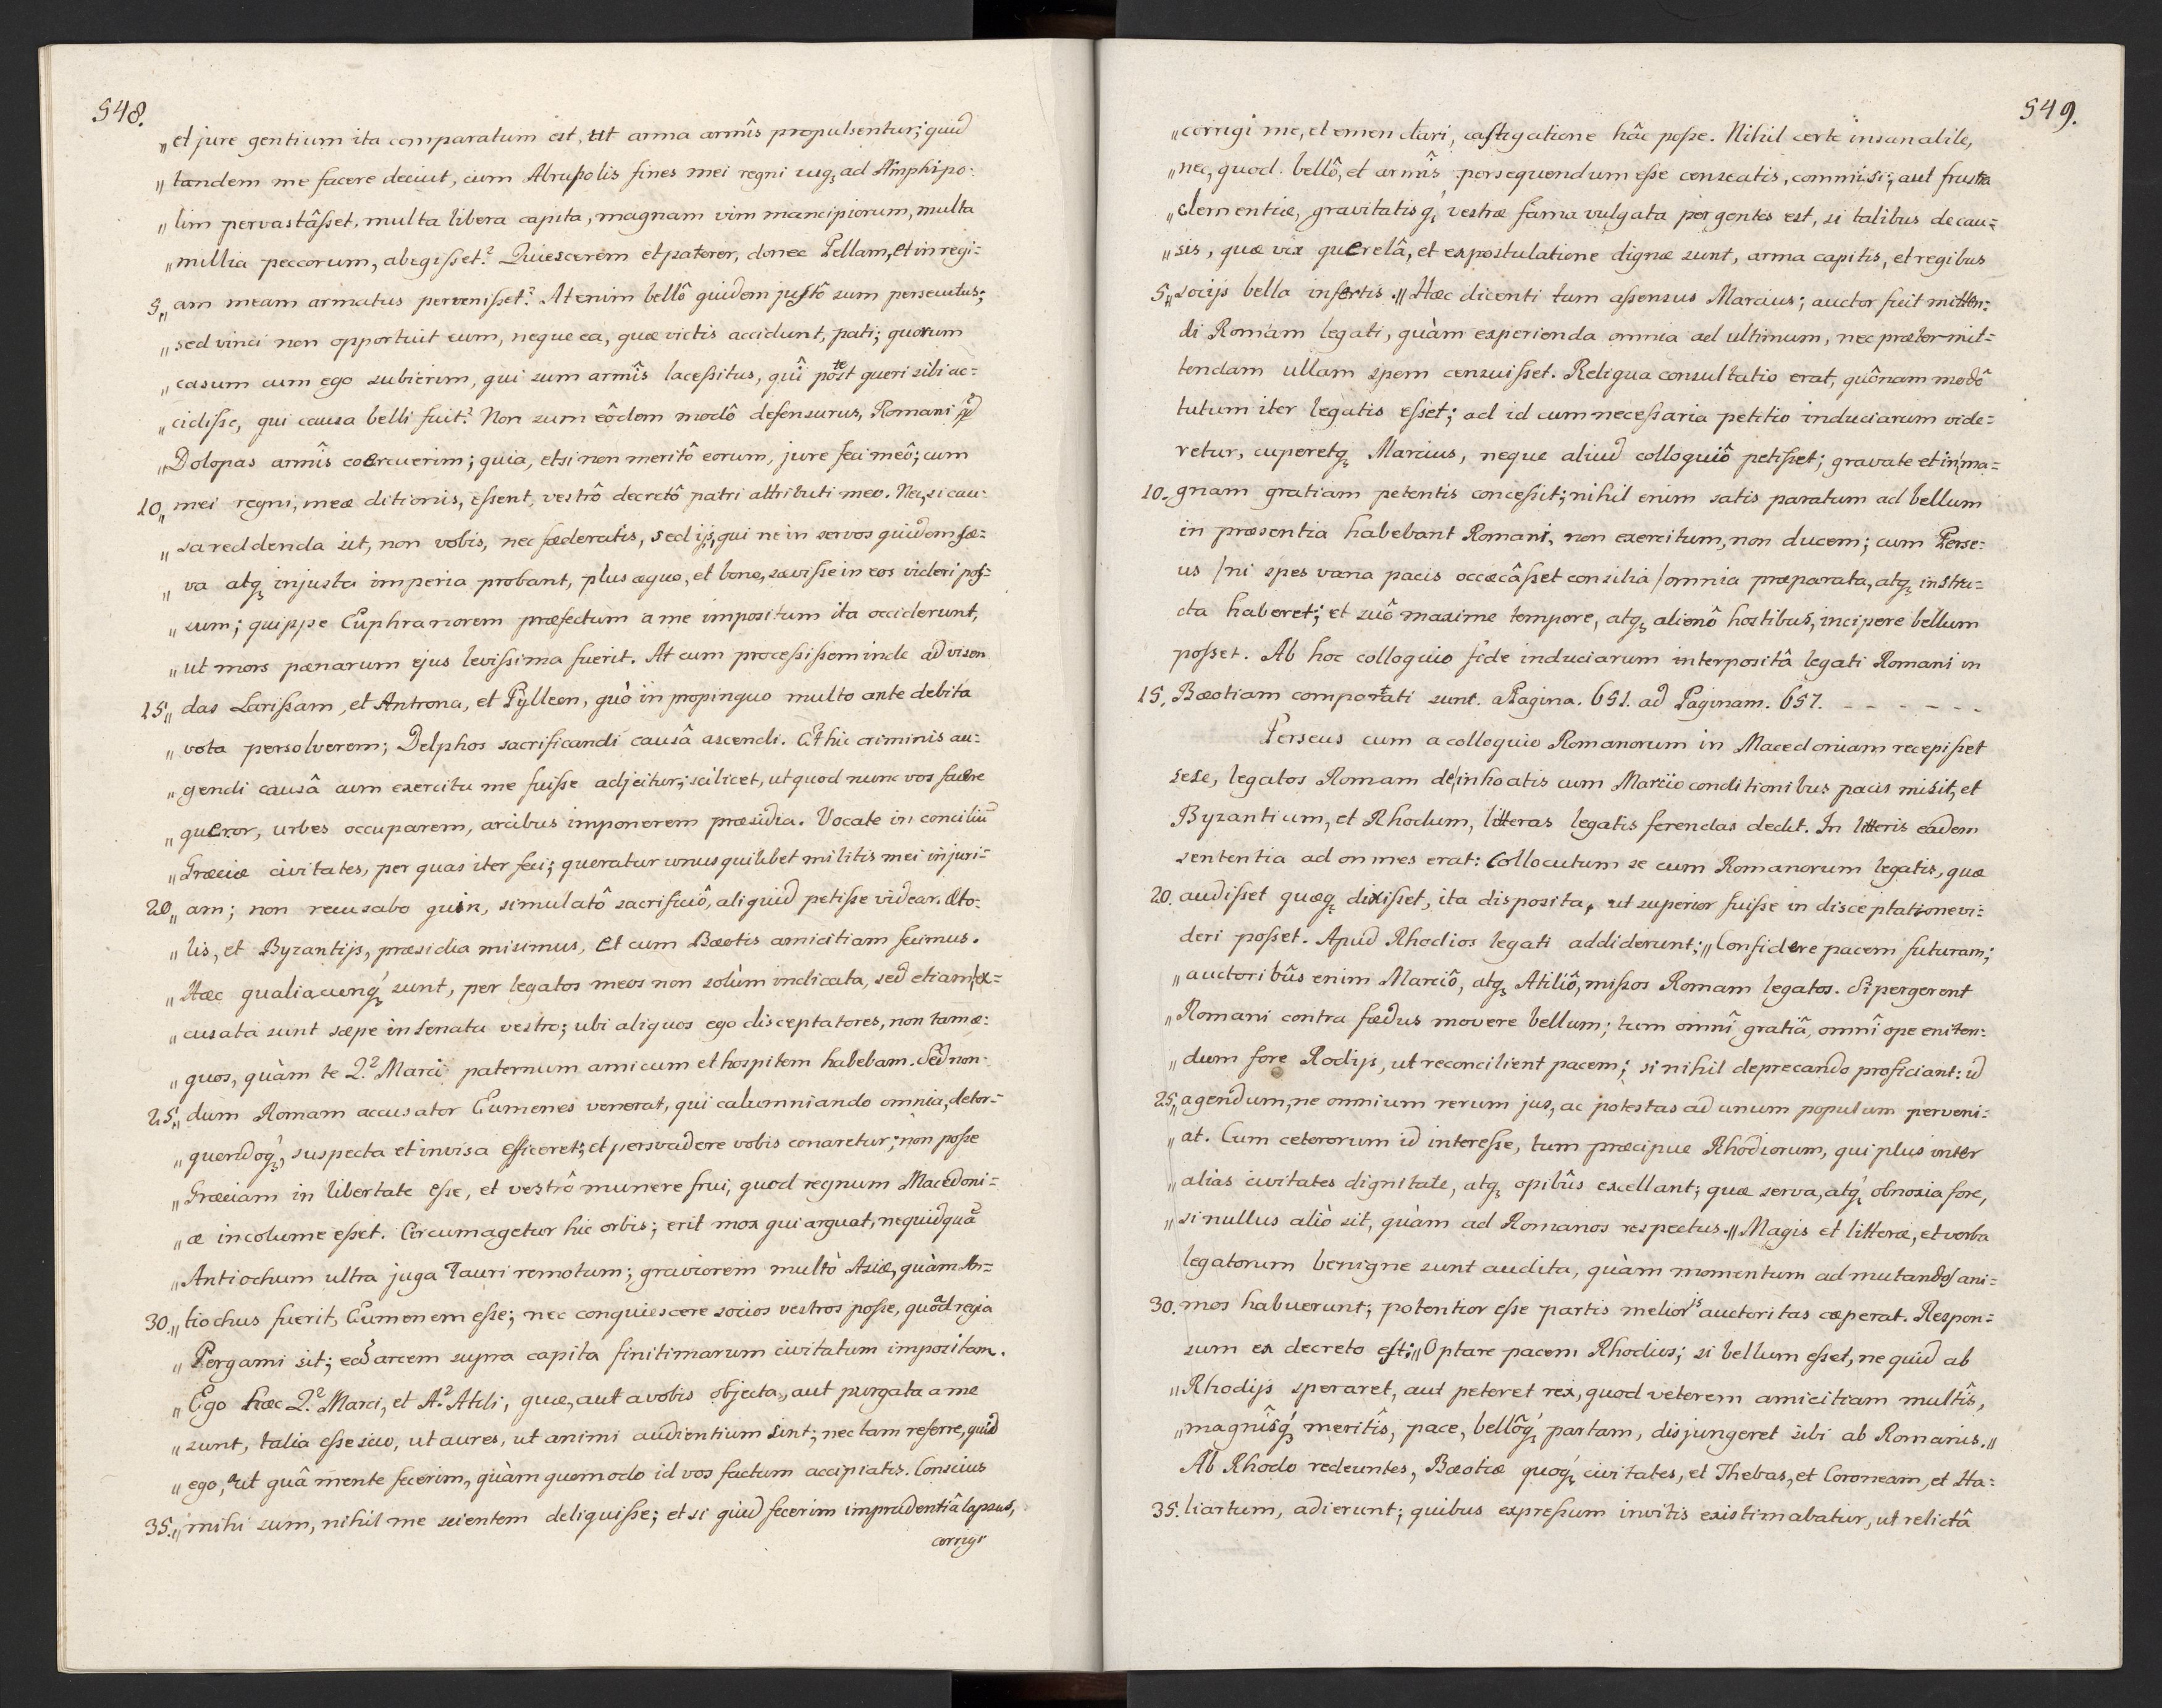 548.
„et jure gentium ita comparatum est, ut arma armîs propulsentur; quid
„tandem me facere deciut, cum Abrupolis fines mei regni usq; ad Amphipo:
„lim pervastâsset, multa libera capita, magnam vim mancipiorum, multa
„millia peccorum, abegisset? Quiescerem et paterer, donec Pellam, et in regi=
5„am meam armatus pervenisset? Atenim bellô quidem justô sum persecutus;
„sed vinci non opportuit eum, neque ea, quæ victis accidunt, pati; quorum
„casum cum ego subierim, qui sum armîs lacessitus, quî potest queri sibi ac=
„cidisse, qui causa belli fuit? Non sum eôdem modô defensurus, Romani qd
„Dolopas armîs coërcuerim; quia, etsi non meritô eorum, jure feci meô; cum
10„mei regni, meæ ditionis, essent, vestrô decretô patri attributi meo. Nec, si cau=
„sa reddenda sit, non vobis, nec fæderatis, sed ijs, qui ne in servos quidem sæ=
„va atq; injusta imperia probant, plus æquo, et bono, sævisse in eos videri pos=
„sum; quippe Euphranorem præfectum a me impositum ita occiderunt,
„ut mors pænarum ejus levissima fuerit. At cum processissem inde ad visen
15„das Larissam, et Antrona, et Pÿlleon, quò in propinquo multo ante debita
„vota persolverem; Delphos sacrificandi causâ ascendi. Et hic criminis au=
„gendi causâ cum exercitu me fuisse adjeitur; scilicet, ut quod nunc vos facere
„queror, urbes occuparem, arcibus imponerem præsidia. Vocate in conciliū
„Græciæ civitates, per quas iter feci; queratur unus quilibet militis mei injuri=
20„am; non recusabo quin, simulatô sacrificiô, aliquid petisse videar. Æto=
„lis, et Byzantijs, præsidia misimus, et cum Bæotis amicitiam fecimus.
„Hæc qualiacunq; sunt, per legatos meos non solùm indicata, sed etiam ex=
„cusata sunt sæpe in senatu vestro; ubi aliquos ego disceptatores, non tam æ=
„quos, quàm te Q? Marci paternum amicum et hospitem habebam. Sed non=
25„dum Romam accusator Eumenes venerat, qui calumniando omnia, detor=
„quendoq;, suspecta et invisa efficeret; et persvadere vobis conaretur; non posse
„Græciam in libertate esse, et vestrô munere frui, quod regnum Macedoni=
„æ incolume esset. Circumagetur hic orbis; erit mox qui arguat, nequidquā
„Antiochum ultra juga Tauri remotum; graviorem multò Asiæ, quàm An=
30„tiochus fuerit, Eumenem esse; nec conquiescere socios vestros posse, quoad regia
„Pergami sit; eam arcem supra capita finitimarum civitatum impositam.
„Ego hæc Q? Marci, et A? Atili, quæ, aut a vobis objecta, aut purgata a me
„sunt, talia esse scio, ut aures, ut animi audientium sint; nec tam referre, quid
„ego, aut quâ mente fecerim, quàm quomodo id vos factum accipiatis. Conscius
35„mihi sum, nihil me scientem deliquisse; et si quid fecerim imprudentiâ lapsus,
corrigi
549.
„corrigi me, et emendari, castigatione hâc posse. Nihil certe insanabile,
„nec, quod bellô, et armîs persequendum esse censeatis, commisi; aut frustra
„clementiæ, gravitatisq; vestræ fama vulgata per gentes est, si talibus de cau=
„sis, quæ vix querelâ, et expostulatione dignæ sunt, arma capitis, et regibus
5„socijs bella infertis.„ Hæc dicenti tum assensus Marcius; auctor fuit mitten=
di Romam legati, quàm experienda omnia ad ultimum, nec prætermit=
tendam ullam spem censuisset. Reliqua consultatio erat, quônam modô
tutum iter legatis esset; ad id cum necessaria petitio induciarum vide=
retur, cuperetq; Marcius, neque aliud colloquiô petisset; gravate et in ma=
10. gnam gratiam petentis concessit; nihil enim satis paratum ad bellum
in præsentia habebant Romani, non exercitum, non ducem; cum Perse=
us /ni spes vana pacis occæcâsset consilia/ omnia præparata, atq; instru=
cta haberet; et suô maxime tempore, atq; alienô hostibus, incipere bellum
posset. Ab hoc colloquio fide induciarum interpositâ legati Romani in
15. Bæotiam comportati sunt. a Pagina. 651. ad Paginam. 657. - - - - - -
Perseus cum a colloquio Romanorum in Macedoniam recepisset
sese, legatos Romam de inhoatis cum Marcio conditionibus pacis misit, et
Byzantium, et Rhodum, litteras legatis ferendas dedit. In litteris eadem
sententia ad omnes erat: Collocutum se cum Romanorum legatis, quæ
20. audisset quæq; dixisset, ita disposita, ut superior fuisse in disceptatione vi=
deri posset. Apud Rhodios legati addiderunt; „Confidere pacem futuram;
„auctoribûs enim Marciô, atq; Atiliô, missos Romam legatos. Si pergerent
„Romani contra fædus movere bellum; tum omnî gratiâ, omnî ope eniten=
„dum fore Rodijs, ut reconcilient pacem; si nihil deprecando proficiant: id
25„agendum, ne omnium rerum jus, ac potestas ad unum populum perveni=
„at. Cum ceterorum id interesse, tum præcipue Rhodiorum, qui plus inter
„alias civitates dignitate, atq; opibûs excellant; quæ serva, atq; obnoxia fore,
„si nullus aliò sit, quàm ad Romanos respectus.„ Magis et litteræ, et verba
legatorum benigne sunt audita, quàm momentum ad mutandos ani=
30. mos habuerunt; potentior esse partis melioris auctoritas cæperat. Respon=
sum ex decreto est; „Optare pacem Rhodius; si bellum esset, ne quid ab
„Rhodijs speraret, aut peteret rex, quod veterem amicitiam multîs,
„magnîsq; meritîs, pace, bellôq; partam, disjungeret sibi ab Romanis.„
Ab Rhodo redeuntes, Bæotiæ quoq; civitates, et Thebas, et Coroneam, et Ha=
35. liartum, adierunt; quibus expressum invitis existimabatur, ut relictâ